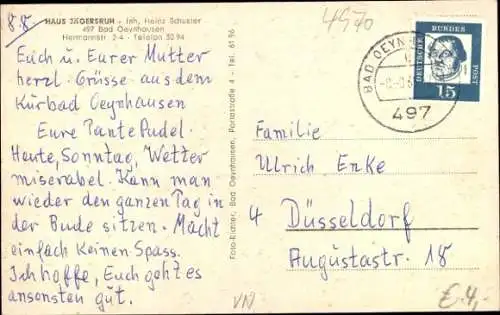 8.8.
HAUS JÄGERSRUH - Inh. Heinz Schuster
497 Bad Oeynhausen
Hermannstr. 2-4 - Telefon 5294
Euch u. Eurer Mutter
herzl. Grüsse aus dem
Kurbad Oeynhausen
Eure Tante Pudel.
Heute, Sonntag, Wetter
miserabel. Kann man
wieder den ganzen Tag in
der Bude sitzen. Macht
einfach keinen Spass.
Ich hoffe, Euch geht es
ansonsten gut.
Foto-Blatter, Bad Oeynhausen, Portastraße 4 - Tel. 6196
4970
BAD OEYN
497
DEUTSCHE BUNDES POST
15
Familie
Ulrich Enke
4 Düsseldorf
Augustastr. 18
VN
€ 4,-